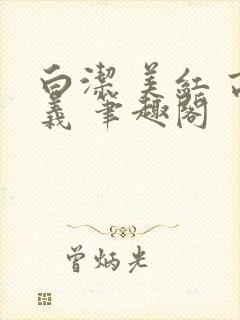 白潔 美紅 高
義 筆趣閣
曾炳光